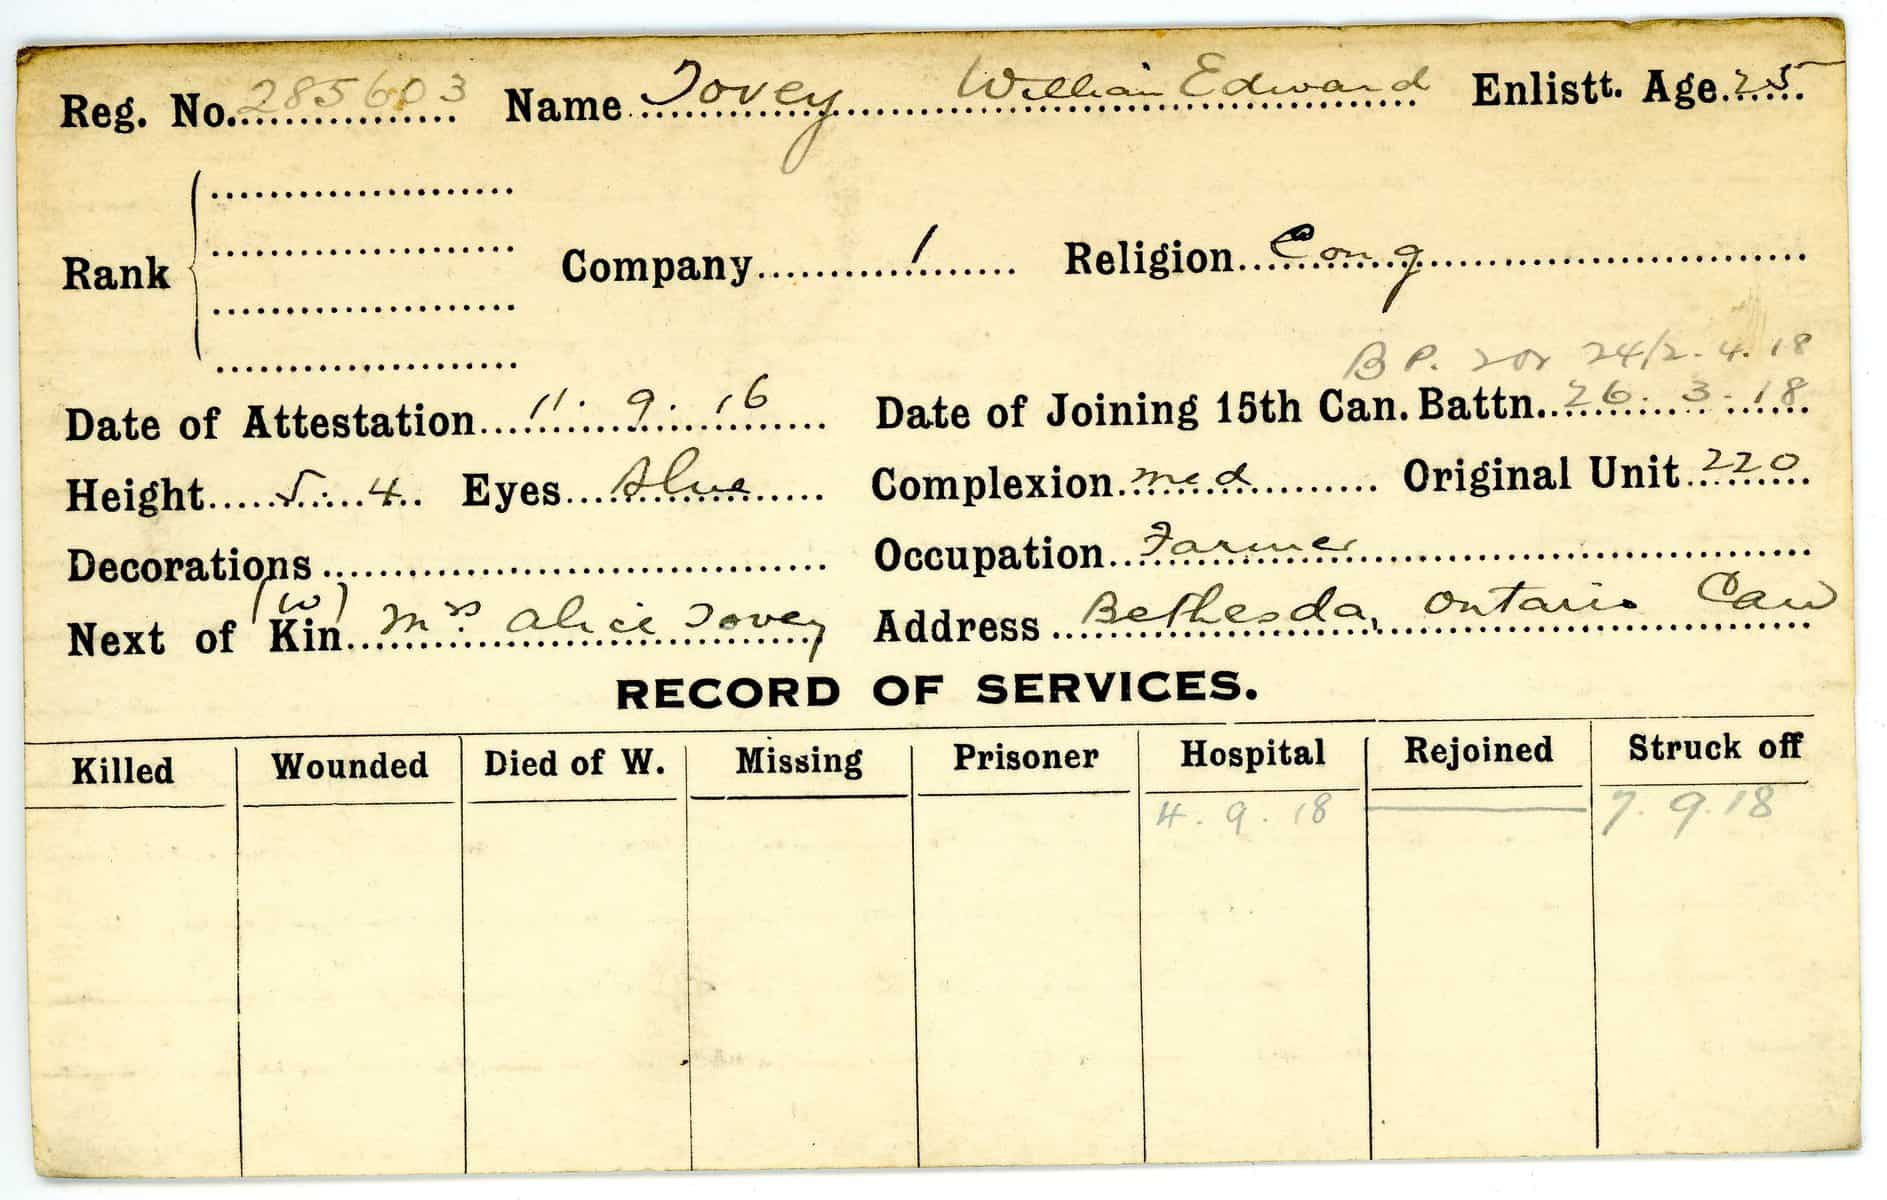 Reg. No. 285603 Name Tovey William Edward Enlistt. Age. 25
Rank Company 1 Religion Cong
B P. 24/2.4.18
Date of Attestation 11.9.16 Date of Joining 15th Can. Battn. 26.3.18
Height 5.4 Eyes Blue Complexion med Original Unit 220
Decorations Occupation Farmer
(W)
Next of Kin Mrs Alice Tovey Address Bethesda, Ontario Can
RECORD OF SERVICES.
Killed Wounded Died of W. Missing Prisoner Hospital Rejoined Struck off
4.9.18 7.9.18